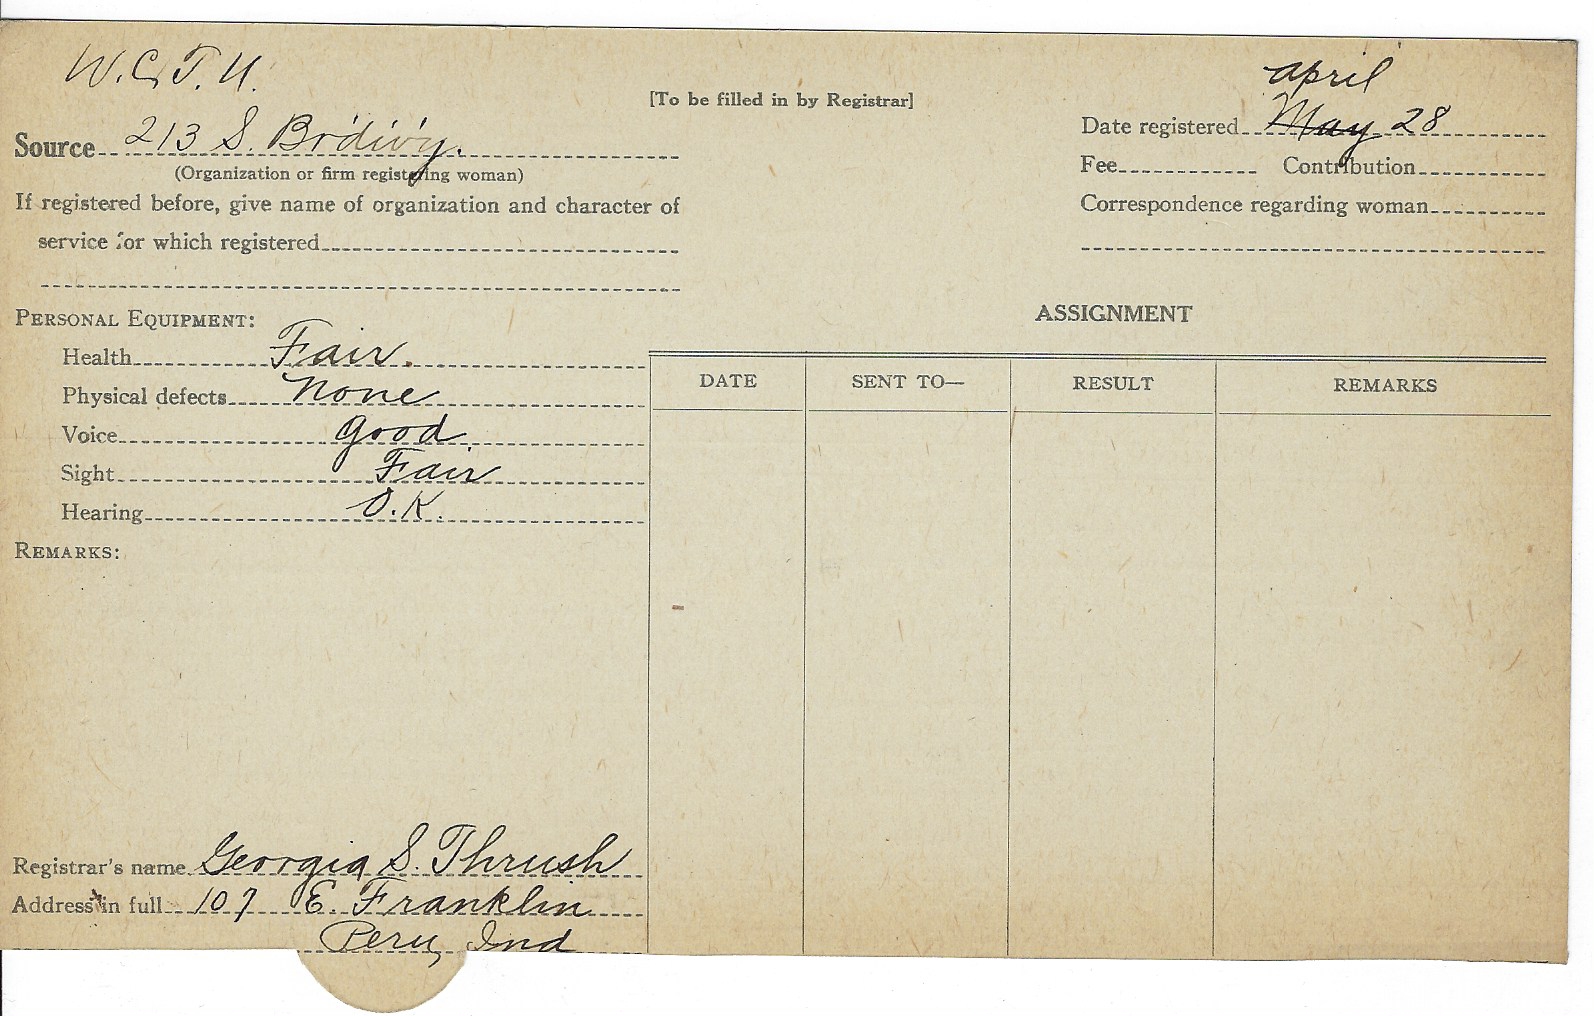 W.C.T.U.
[To be filled in by Registrar]
Source 213 S. Br'dw'y.
(Organization or firm registering woman)
If registered before, give name of organization and character of
service for which registered
April
Date registered May 28
Fee Contribution
Correspondence regarding woman
PERSONAL EQUIPMENT:
Health Fair.
Physical defects None
Voice Good
Sight Fair
Hearing O.K.
REMARKS:
ASSIGNMENT
DATE SENT TO— RESULT REMARKS
Registrar's name Georgia S. Thrush
Address in full 107 E. Franklin
Peru, Ind